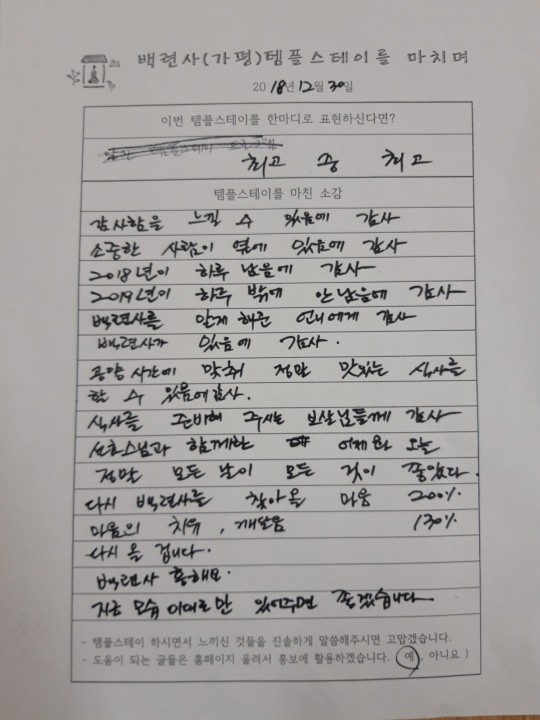 백련사(가평)템플스테이를 마치며
2018년 12월 30일
이번 템플스테이를 한마디로 표현하신다면?
최고 중 최고
템플스테이를 마친 소감
감사함을 느낄 수 있음에 감사
소중한 사람이 옆에 있음에 감사
2018년이 하루 남음에 감사
2019년이 하루 밖에 안남음에 감사
백련사를 알게 해준 언니에게 감사
백련사가 있음에 감사.
공양시간에 맞춰 정말 맛있는 식사를
할 수 있음에 감사.
식사를 준비해 주시는 보살님들께 감사
함께한 어제와 오늘
정말 모든 날이 모든 것이 좋았다.
다시 백련사를 찾아올 마음 200%
마음의 치유, 깨달음 130%
다시 올 겁니다.
백련사 흥해요.
지금 모습 이대로만 있어주면 좋겠습니다.
- 템플스테이 하시면서 느끼신 것들을 진솔하게 말씀해주시면 고맙겠습니다.
- 도움이 되는 글들은 홈페이지 올려서 홍보에 활용하겠습니다. ( 예, 아니요 )